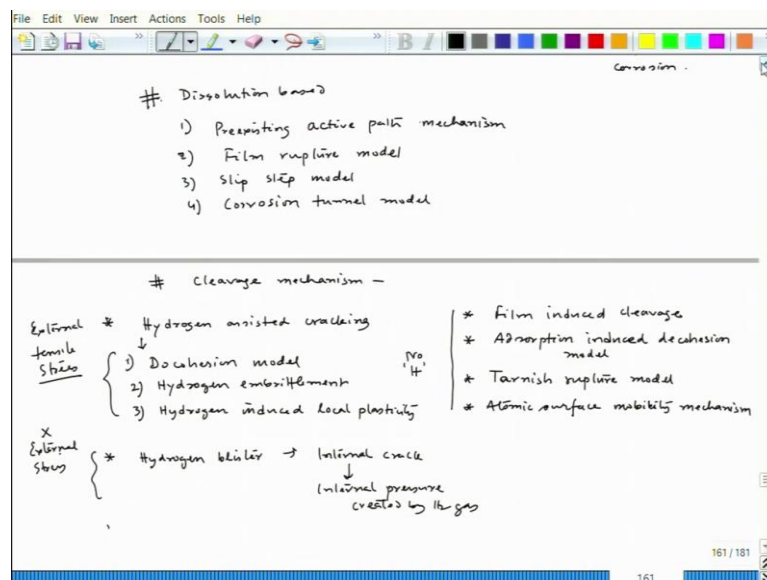 File Edit View Insert Actions Tools Help
B I
Corrosion.
# Dissolution based
1) Preexisting active path mechanism
2) Film rupture model
3) Slip step model
4) Corrosion tunnel model
# Cleavage mechanism -
External tensile stress
* Hydrogen assisted cracking
↓
1) Decohesion model
2) Hydrogen embrittlement
3) Hydrogen induced local plasticity
No 'H'
* Film induced cleavage
* Adsorption induced decohesion
model
* Tarnish rupture model
* Atomic surface mobility mechanism
X
External
Stress
* Hydrogen blister → Internal crack
↓
Internal pressure
created by H2 gas
161 / 181
161